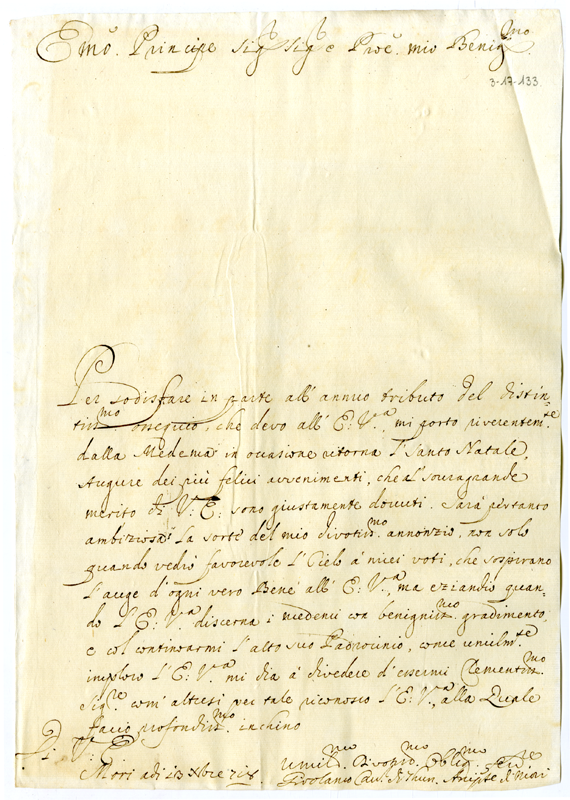 Emo. Principe Sigr Sigr e Proe. mio Benigmo.
3-17-133
Per sodisfare in parte all' annuo tributo del distin=
timo. ossequio, che devo all' E: Va, mi porto riverentemte
dalla Medema in occasione ritorna l' Santo Natale,
Augure dei più felici avvenimenti, che al souragrande
merito di V: E: sono giustamente dovuti. Sarà pertanto
ambiziosa la sorte del mio divotimo annonzio, non solo
quando vedrò favorevole l' Cielo à miei voti, che sospirano
l'auge d'ogni vero Bene all' E: Va, ma eziandio quan=
do l' E: Va discerna i medemi con benignismo. gradimento,
e col continoarmi l'alto suo Padrocinio, come umilmte
imploro l' E: Va mi dia à divedere d' essermi Clementimo
Sigre com' altresi per tale riconosco l' E: Va, alla Quale
faccio profondismo. inchino
Di V: E:
Mori adi 13 Xbre
Umilmo Divomo. Obligmo Serre